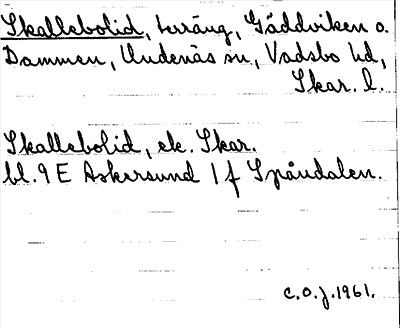 Skallebolid, terräng, Gäddviken o.
Dammen, Undenäs sn., Vadsbo hd,
Skar. l.
Skallebolid, ek. Skar.
bl. 9 E Askersund 1 f Spåndalen.
C.O.J. 1961.